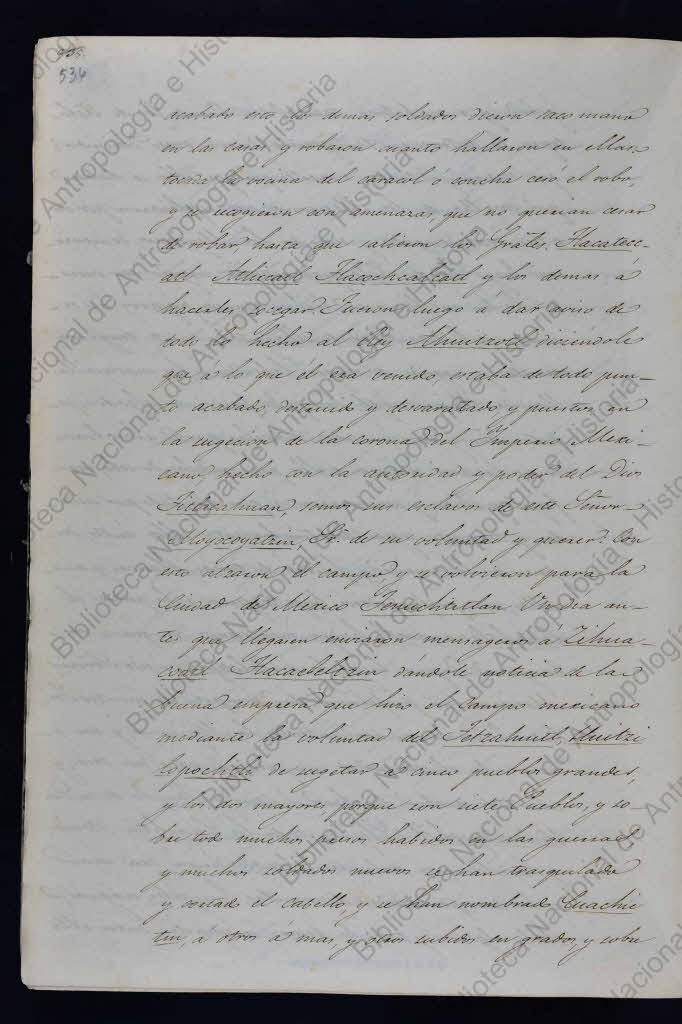 534
acabado esto los demas soldados dieron saco mano
en las casas y robaron cuanto hallaron en ellas,
tocada la vocina del caracol ó concha cesó el robo,
y se recogieron con amenazas, que no querian cesar
de robar, hasta que salieron los Grâles. Tlacatec-
catl Atlicatl Tlacochcalcatl y los demas á
hacerles zocegar. Fueron luego á dar aviso de
todo lo hecho al Rey Ahuitzotl diciéndole
que á lo que él era venido, estaba de todo pun-
to acabado, destruido y desvaratado y puestos en
la sugecion de la corona del Imperio Mexi-
cano, hecho con la autoridad y poder del Dios
Titlacahuan, somos sus esclavos de este Señor
Moyocoyatzin, Sr. de su voluntad y querer. Con
esto alzaron el campo y se volvieron para la
Ciudad de Mexico Tenuchtitlan Un dia an-
te que llegasen enviaron mensageros á Zihua-
coatl Tlacaeleltzin dándole noticia de la
buena empresa que hizo el Campo mexicano
mediante la voluntad del Tetzahuitl, Huitzi
lopochtli de sugetar á cinco pueblos grandes,
y los dos mayores porque son siete Pueblos, y so-
bre todo muchos presos habidos en las guerras
y muchos soldados nuevos se han trasquilado
y cortado el cabello, y se han nombrado Cuachic
tin, a otros a mas, y otros subidos en grados, y sobre
Biblioteca Nacional de Antropología e Historia